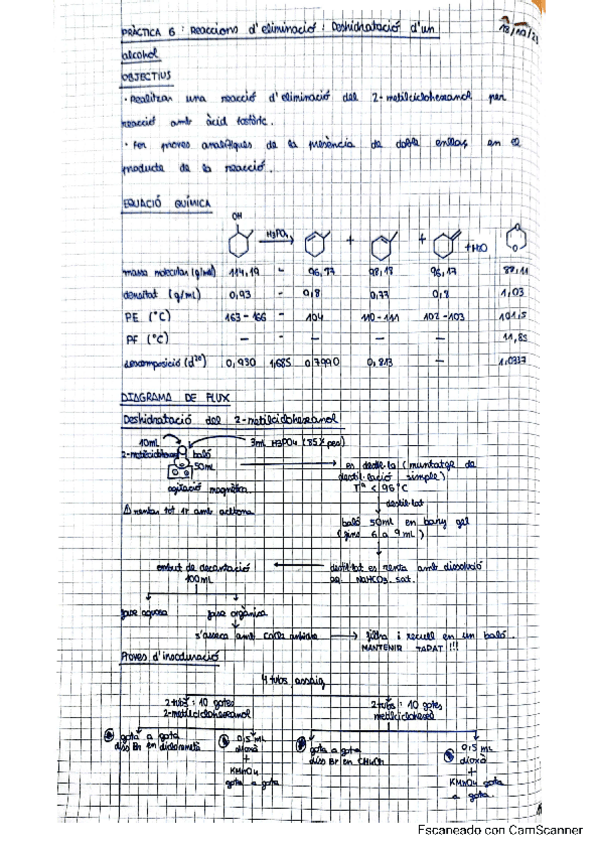 PRÀCTICA 6 : Reaccions d'eliminació : Deshidratació d'un
alcohol
OBJECTIUS
· Realitzar una reacció d'eliminació del 2-metilciclohexanol per
reacció amb àcid fosfòric.
· Fer proves analítiques de la presència de doble enllaç en el
producte de la reacció.
EQUACIÓ QUÍMICA
OH
H3PO4
+ + + H2O
massa molecular (g/mol) 114,19 - 96,17 98,18 96,17 88,11
densitat (g/mL) 0,93 - 0,8 0,77 0,8 1,03
PE (°C) 163-166 - 104 110-111 102-103 101,5
PF (°C) - - - - - 11,85
descomposició (d20) 0,930 1,685 0,7990 0,813 - 1,0337
DIAGRAMA DE FLUX
Deshidratació del 2-metilciclohexanol
10mL 3mL H3PO4 (85% pes)
2-metilciclohexanol baló
50mL
agitació magnètica.
es destil·la (muntatge de
destil·lació simple)
Tª < 96°C
destil·lat
⚠ rentar tot 1r amb acetona
baló 50ml en bany gel
(fins 6 a 9 mL)
embut de decantació
100mL
destil·lat es renta amb dissolució
aq. NaHCO3 sat.
fase aquosa fase orgànica
s'asseca amb CaCl2 anhidre filtra i recull en un baló.
MANTENIR TAPAT !!!
Proves d'insaturació
4 tubs assaig
2 tubs : 10 gotes
2-metilciclohexanol
2 tubs : 10 gotes
metilciclohexè
gota a gota
diss Br en diclorometà
0,5 mL
dioxà
+
KMnO4
gota a gota
gota a gota
diss Br en
0,5 mL
dioxà
+
KMnO4 gota
a gota.
Escaneado con CamScanner